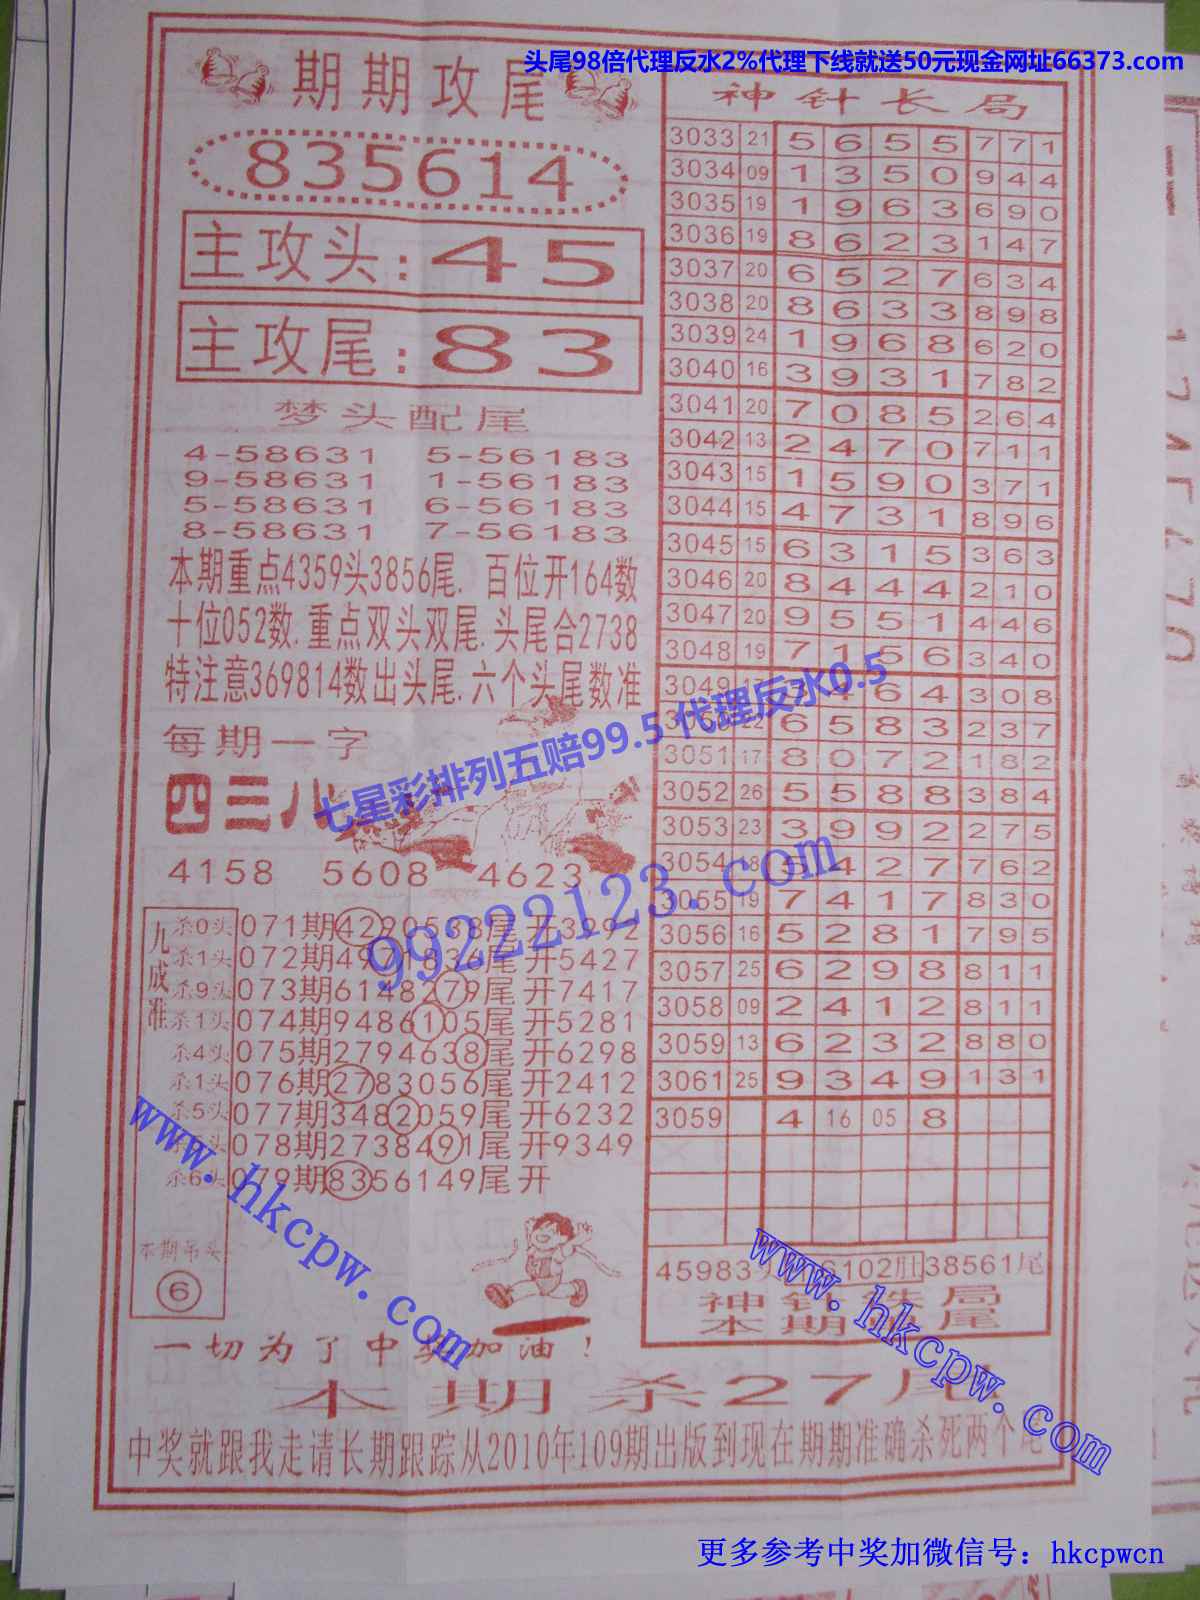 头尾98倍代理反水2%代理下线就送50元现金网址66373.com
期期攻尾
835614
主攻头:45
主攻尾:83
梦头配尾
4-58631 5-56183
9-58631 1-56183
5-58631 6-56183
8-58631 7-56183
本期重点4359头3856尾. 百位开164数
十位052数.重点双头双尾.头尾合2738
特注意369814数出头尾.六个头尾数准
每期一字
四三八
4158 5608 4623
九成准
杀0头 071期4290538尾 开3992
杀1头 072期4971836尾 开5427
杀9头 073期6148279尾 开7417
杀1头 074期9486105尾 开5281
杀4头 075期2794638尾 开6298
杀1头 076期2783056尾 开2412
杀5头 077期3482059尾 开6232
头 078期2738491尾 开9349
杀6头 079期8356149尾 开
本期吊头
6
一切为了中奖加油!
神针长局
3033 21 5 6 5 5 7 7 1
3034 09 1 3 5 0 9 4 4
3035 19 1 9 6 3 6 9 0
3036 19 8 6 2 3 1 4 7
3037 20 6 5 2 7 6 3 4
3038 20 8 6 3 3 8 9 8
3039 24 1 9 6 8 6 2 0
3040 16 3 9 3 1 7 8 2
3041 20 7 0 8 5 2 6 4
3042 13 2 4 7 0 7 1 1
3043 15 1 5 9 0 3 7 1
3044 15 4 7 3 1 8 9 6
3045 15 6 3 1 5 3 6 3
3046 20 8 4 4 4 2 1 0
3047 20 9 5 5 1 4 4 6
3048 19 7 1 5 6 3 4 0
3049 17 3 4 6 4 3 0 8
3050 22 6 5 8 3 2 3 7
3051 17 8 0 7 2 1 8 2
3052 26 5 5 8 8 3 8 4
3053 23 3 9 9 2 2 7 5
3054 18 5 4 2 7 7 6 2
3055 19 7 4 1 7 8 3 0
3056 16 5 2 8 1 7 9 5
3057 25 6 2 9 8 8 1 1
3058 09 2 4 1 2 8 1 1
3059 13 6 2 3 2 8 8 0
3061 25 9 3 4 9 1 3 1
3059 4 16 05 8
45983头 6102肚 38561尾
神针 局
本期 尾
本期杀27尾
中奖就跟我走请长期跟踪从2010年109期出版到现在期期准确杀死两个尾
七星彩排列五赔99.5 代理反水0.5
99222123.com
www.hkcpw.com
www.hkcpw.com
更多参考中奖加微信号：hkcpwcn